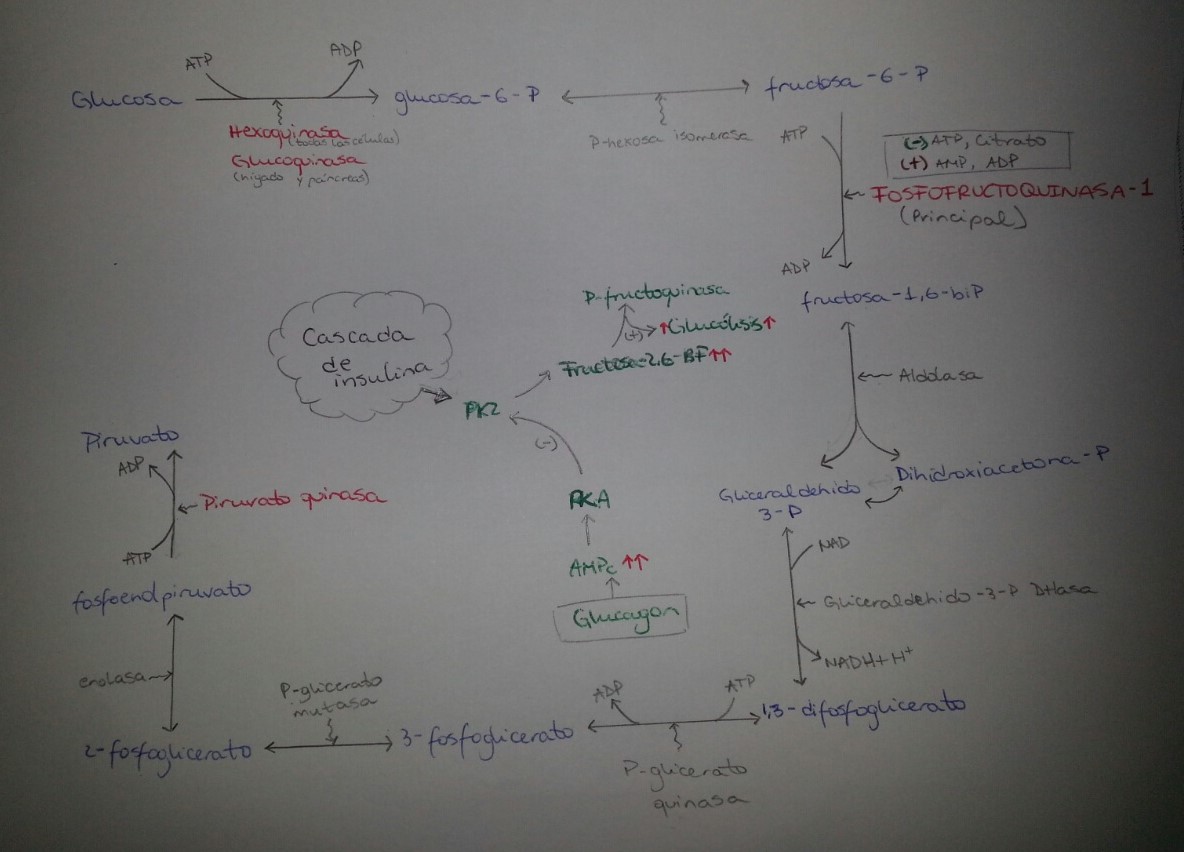 ATP
ADP
Glucosa
glucosa-6-P
fructosa-6-P
Hexoquinasa
(todas las células)
Glucoquinasa
(hígado y páncreas)
P-hexosa isomerasa
ATP
(-) ATP, Citrato
(+) AMP, ADP
FOSFOFRUCTOQUINASA-1
(Principal)
ADP
fructosa-1,6-biP
P-fructoquinasa
(+) ↑Glucólisis↑
Fructosa-2,6-BF↑↑
Cascada
de
insulina
PK2
(-)
Aldolasa
Piruvato
ADP
Piruvato quinasa
ATP
PKA
AMPc ↑↑
Glucagon
Gliceraldehido
3-P
Dihidroxiacetona-P
NAD
Gliceraldehido-3-P DHasa
NADH+H⁺
fosfoenolpiruvato
enolasa
P-glicerato
mutasa
ADP
ATP
1,3-difosfoglicerato
2-fosfoglicerato
3-fosfoglicerato
P-glicerato
quinasa